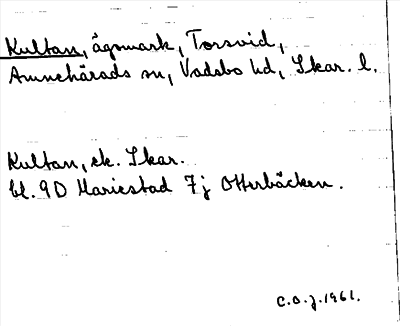 Kultan, ägomark, Torsvid,
Amnehärads sn, Vadsbo hd, Skar. l.
Kultan, ek. Skar.
bl. 9D Mariestad 7j Otterbäcken.
C.O.J. 1961.